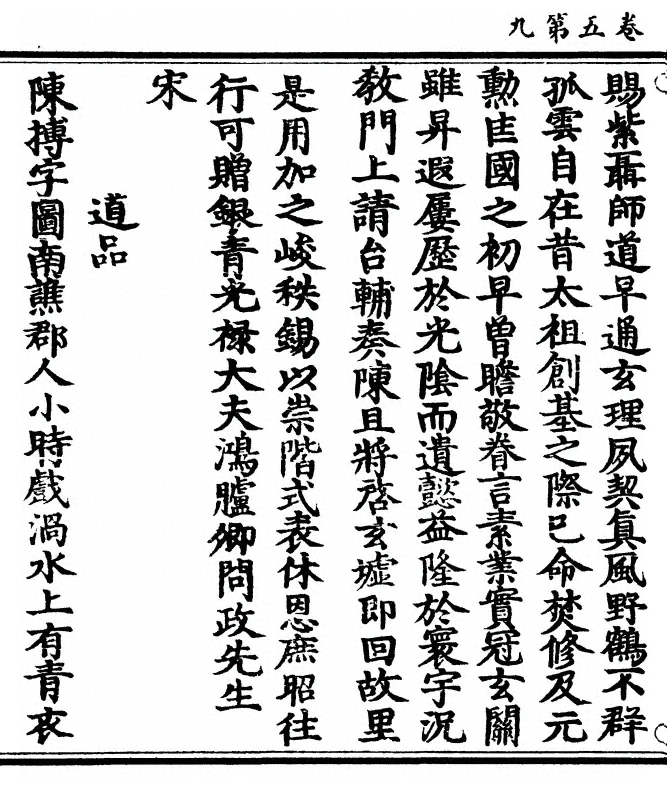 卷五第九
賜紫聶師道早通玄理夙契真風野鶴不群
孤雲自在昔太祖創基之際已命焚修及元
勲匡國之初早曾瞻敬眷言素業實冠玄關
雖昇遐屢歷於光陰而遺懿益隆於寰宇況
教門上請台輔奏陳且將啓玄墟即回故里
是用加之峻秩錫以崇階式表休恩庶昭往
行可贈銀青光祿大夫鴻臚卿問政先生
宋
道品
陳摶字圖南譙郡人小時戲渦水上有青衣